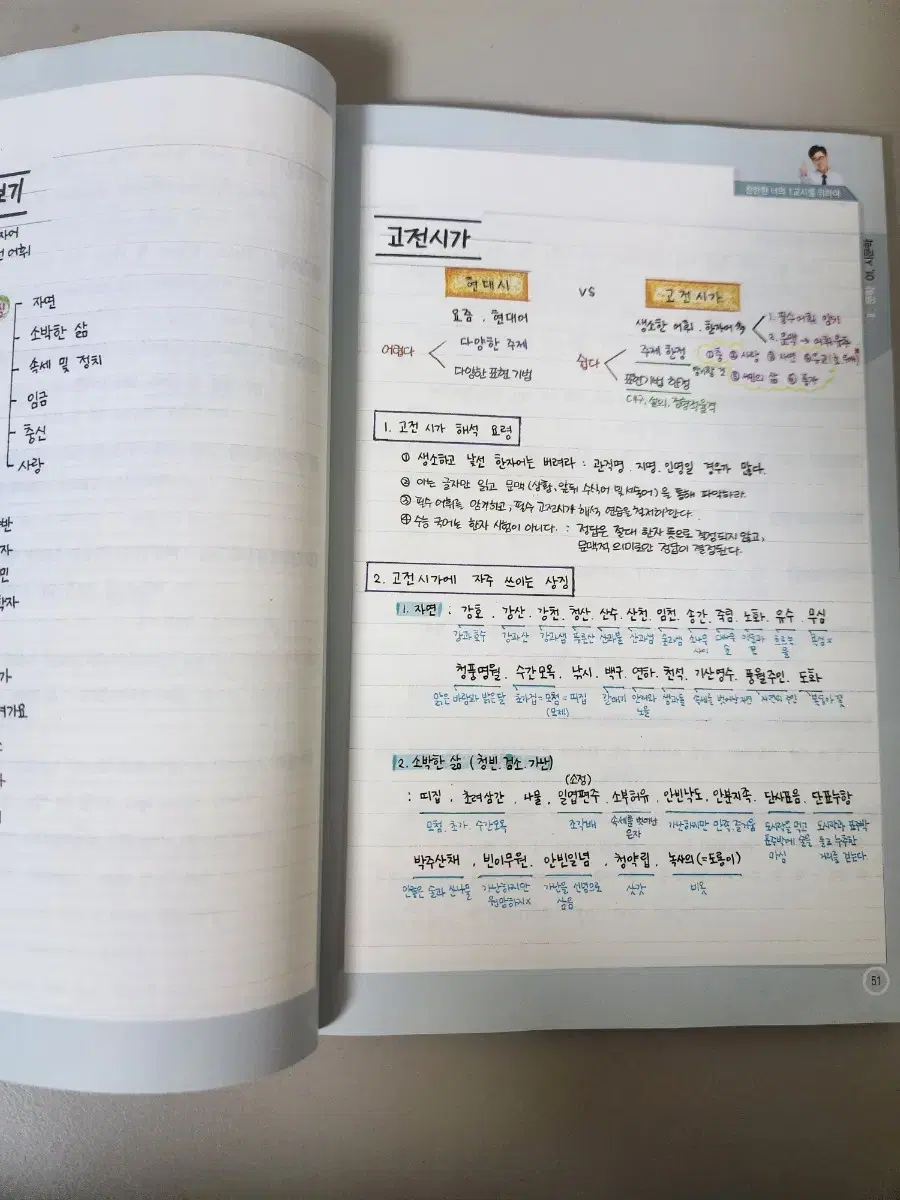 보기
자어
어휘
자연
소박한 삶
속세 및 정치
임금
충신
사랑
반
자
민
학자
가
여가요
찬란한 너의 1교시를 위하여
고전시가
현대시 vs 고전시가
요즘, 현대어
생소한 어휘, 한자어
1. 필수어휘 암기
2. 문맥 →
어렵다
다양한 주제
다양한 표현 기법
쉽다
주제 한정
①충 ②사랑 ③자연
표현기법 한정
대구, 설의,
1. 고전 시가 해석 요령
① 생소하고 낯선 한자어는 버려라 : 관직명, 지명, 인명일 경우가 많다.
② 아는 글자만 읽고 문맥(상황, 앞뒤 수식어 및 서술어)을 통해 파악하라.
③ 필수 어휘를 암기하고, 필수 고전시가 해석 연습을 철저히 한다.
④ 수능 국어는 한자 시험이 아니다. : 정답은 절대 한자 뜻으로 결정되지 않고,
문맥적 의미로만 정답이 결정된다.
2. 고전시가에 자주 쓰이는 상징
1. 자연 : 강호, 강산, 강천, 청산, 산수, 산천, 임천, 송간, 죽림, 노화, 유수, 무심
강과 호수 강과 산 강과 샘 푸른 산 산과 물 산과 샘 숲과 샘 소나무 사이 대나무 숲 흐르는 물 욕심 x
청풍명월, 수간모옥, 낚시, 백구, 연하, 천석, 기산영수, 풍월주인, 도화
맑은 바람과 밝은 달 초가집 = 모첨 = 띠집 갈매기 안개와 노을 샘과 돌 자연의 주인 복숭아 꽃
(모제)
2. 소박한 삶 (청빈, 검소, 가난)
(소정)
: 띠집, 초려삼간, 나물, 일엽편주, 소부허유, 안빈낙도, 안분지족, 단사표음, 단표누항
모첨, 초가, 수간모옥 조각배 속세를 벗어난 은자 가난하지만 만족, 즐거움 도시락을 먹고 표주박에 술을 마심 도시락과 표주박 들고 누추한 거리를 걷는다
박주산채, 빈이무원, 안빈일념, 청약립, 녹사의(=도롱이)
안좋은 술과 산나물 가난하지만 원망하지 x 가난을 신념으로 삼음 삿갓 비옷
51